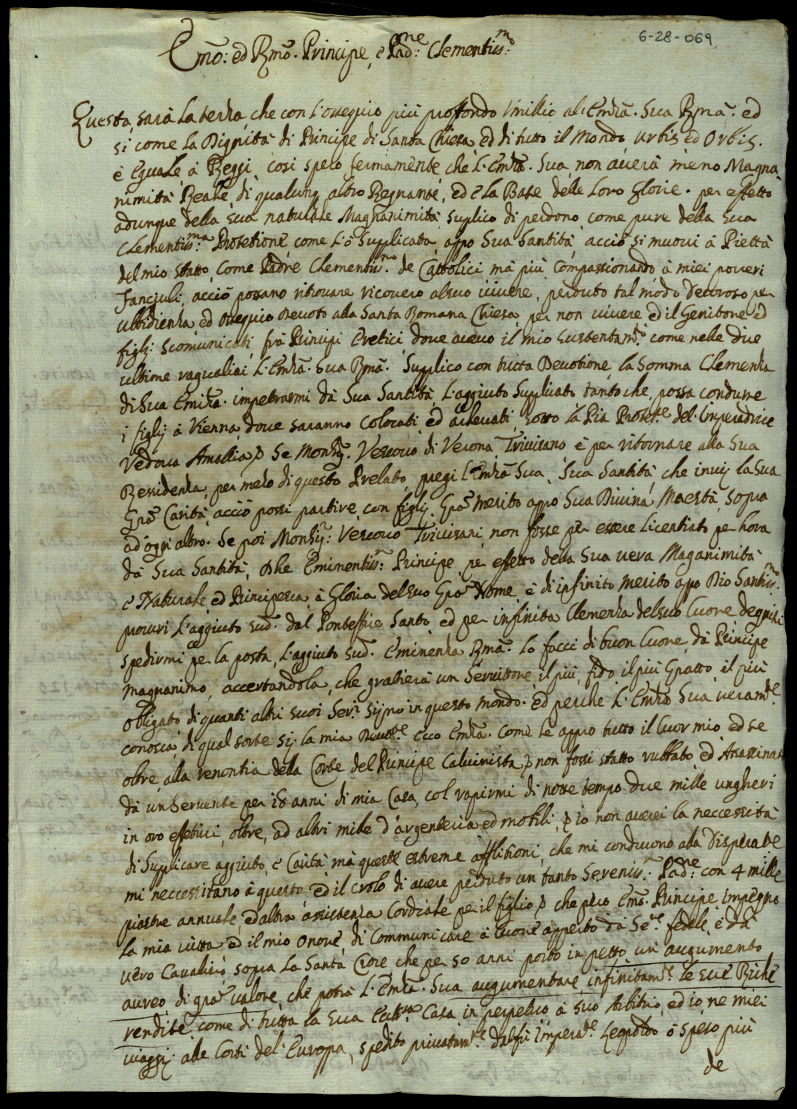 6-28-069
Emo: ed Rmo. Principe, e Padne: Clementissmo:
Questa sarà la terza che con l'ossequio più profondo Umillio al: Emza. Sua Rma. ed
si come la Dignità di Principe di Santa Chiesa, ed di tutto il Mondo Urbis ed Orbis.
è Eguale à Reggi, così spero fermamente che L. Emza. Sua, non averà meno Magna
nimità Reale, di qualunq altro Regnante, ed è la Base delle Loro Glorie. per effetto
adunque della sua naturale Magnanimità suplico di perdono come pure della Sua
Clementissma: Protetione come l'ò Supplicata appo Sua Santità acciò si muovi à Pietta
del mio statto come Padre Clementissmo de Cattolici mà più Compassionando à miei poveri
Fanciuli, acciò possano ritrovare ricovero al suo vivere, perduto tal modo Decoroso per
ubbidienza ed ossequio Devoto alla Santa Romana Chiesa per non vivere è il Genitore ed
figlj: Scomunicati frà Principi Eretici dove avevo il mio sustentamto: come nelle due
ultime ragualiai L'Emza. Sua Rma. Supplico con tutta Devotione la Somma Clemenza
di Sua Emiza. impetrarmi dà Sua Santità L'aggiuto Suplicato tanto che possa condurre
i figlj à Vienna dove saranno Colocati ed Allevati sotto la Pia Protete del Imperadrice
Vedova Amallia p Se Monsigr. Vescovo di Verona Trivisano è per ritornare alla Sua
Residenza, per mezo di questo Prelato, pregi L'Emza Sua, Sua Santità che invij la Sua
Gra Carità acciò possi partire con figlj. Gra merito appo Sua Divina Maestà, sopra
ad'ogni altro. Se poi Monsigr: Vescovo Trivisani non fosse per essere licentiato per hora
dà Sua Santità, Ohe Eminentiss: Principe per effetto della Sua vera Maganimità
è Naturale ed Principesca, à Gloria del suo Gra Nome è di infinito merito appo Dio Santissmo:
procuri L'aggiuto sud: dal Ponteffice Santo ed per infinita Clemenza del suo Cuore degnisi
spedirmi per la posta, L'aggiuto Sud. Eminenza Rma. Lo facci di buon Cuore, dà Principe
magnanimo, accertandola, che gratierà un Servittore il più fido il più Gratto il più
obligato di quanti altri suoi Seri sijno in questo mondo. ed perche L'Emza Sua veramte
conoscia di qual sorte sij la mia Ecco Emza. Come le appro tutto il Cuor mio, ed se
oltre alla renontia della Corte del Principe Calvinista p non fossi statto rubbato ed Assasinato
dà un Servente per 18 anni di mia Casa, col rapirmi di notte tempo due mille ungheri
in oro effetivi, oltre, ad altri mille d'argenteria ed mobili, p io non averei la neccessità
di Supplicare aggiuto, è Carità mà queste estreme afflitioni, che mi conducono alla Disperate
mi neccessitano à questo è il crolo di avere perduto un tanto Sereniss: Padne con 4 mille
piastre annuale è altra assistenza Cordiale per il figlio p che però Emo. Principe Impegno
la mia vitta è il mio Onore, di Communicare à Cuore apperto dà Sere fedele è dà
vero Cavaliero sopra la Santa Croce che per 50 anni porto in petto, un augumento
aureo di gra valore, che potrà L'Emza. Sua augumentare infinitamte le sue Riche
rendite come di tutta la sua Casa in perpetuo à suo Arbitrio, ed io ne miei
viaggj alle Corti del' Europa, spedito privatamte dal fù Imperate Leopoldo ò speso più
de